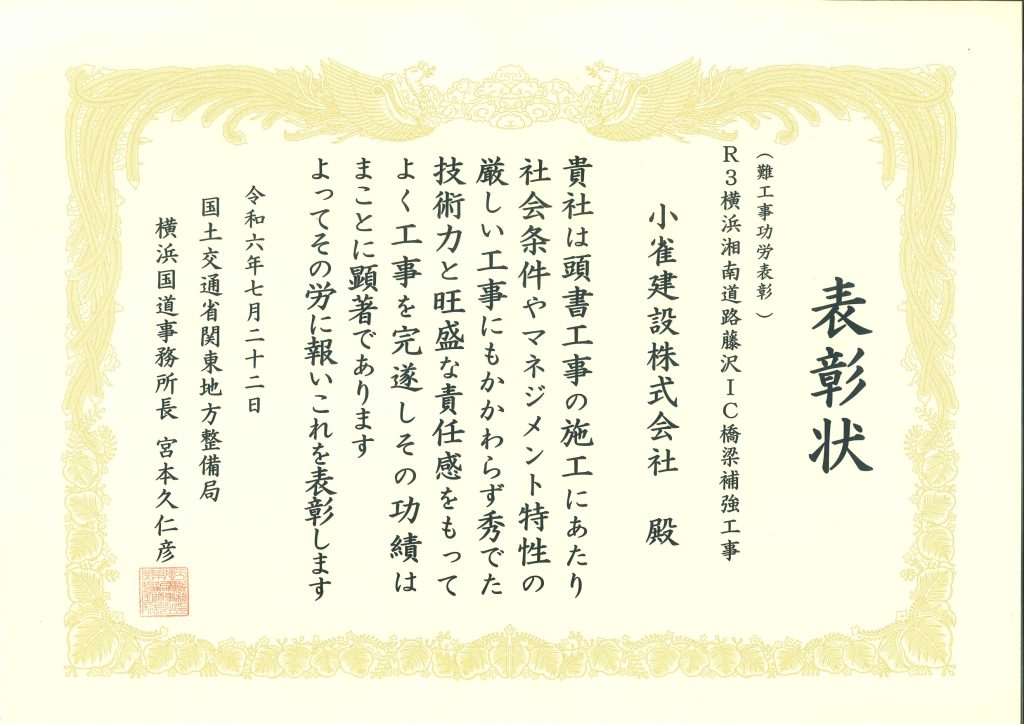 表彰状
（難工事功労表彰）
R3横浜湘南道路藤沢IC橋梁補強工事
小雀建設株式会社 殿
貴社は頭書工事の施工にあたり
社会条件やマネジメント特性の
厳しい工事にもかかわらず秀でた
技術力と旺盛な責任感をもって
よく工事を完遂しその功績は
まことに顕著であります
よってその労に報いこれを表彰します
令和六年七月二十二日
国土交通省関東地方整備局
横浜国道事務所長 宮本久仁彦